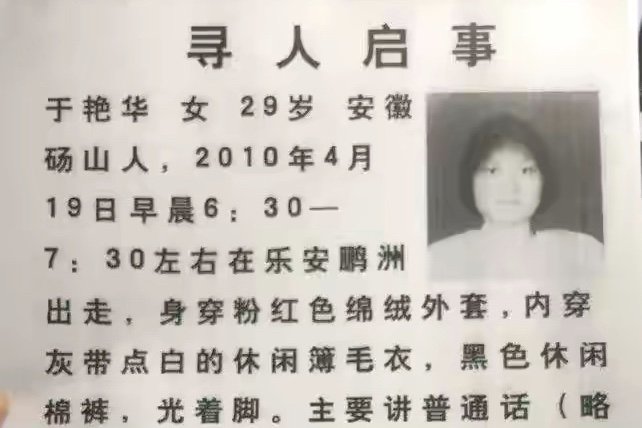 寻人启事
于艳华 女 29岁 安徽
砀山人，2010年4月
19日早晨6：30—
7：30左右在乐安鹏洲
出走，身穿粉红色绵绒外套，内穿
灰带点白的休闲簿毛衣，黑色休闲
棉裤，光着脚。主要讲普通话（略